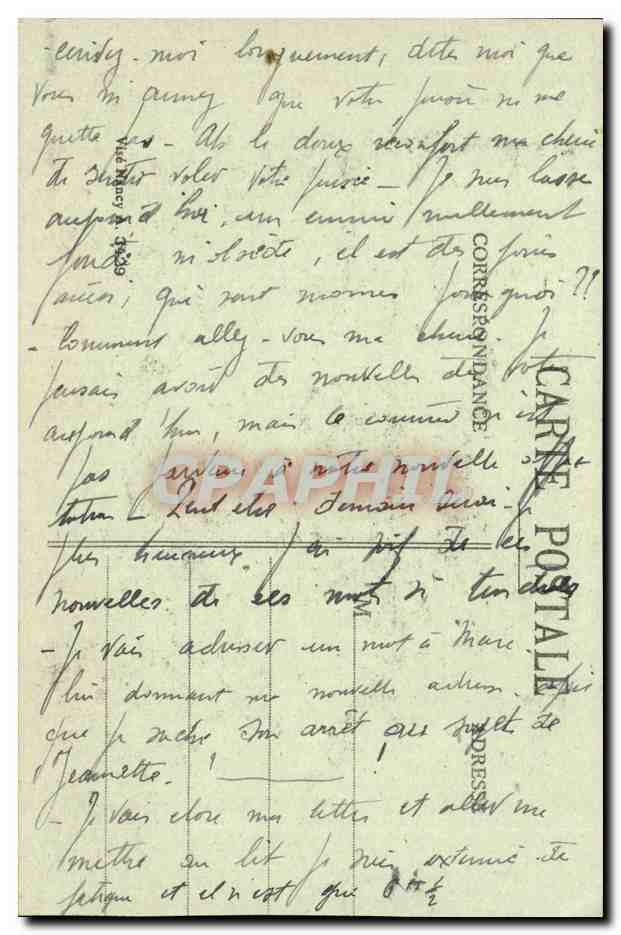 -cendez-moi longuement, dites moi que
vous m'aimez que votre pensée ne me
quitte pas - Ah le doux réconfort ma chérie
de sentir voler votre pensée - Je suis lasse
aujourd'hui, un ennui nullement
fondé m'obsède, il est des jours
ainsi, qui sont mornes pourquoi ??
- Comment allez-vous ma chérie. Je
pensais avoir des nouvelles de
aujourd'hui, mais le courrier n'est
pas parvenu à notre nouvelle
Peut etre demain serai-je
plus heureux j'ai soif de ces
nouvelles de ces mots si tendres
- Je vais adresser un mot à Marc.
lui donnant ma nouvelle adresse.
que je sache son arrêt au sujet de
Jeannette. !
- Je vais clore ma lettre et aller me
mettre au lit je suis exténué de
fatigue et il n'est que 8 H ½
Visé Nancy N. 3439
CORRESPONDANCE
CARTE POSTALE
M
ADRESSE
CPAPHIL